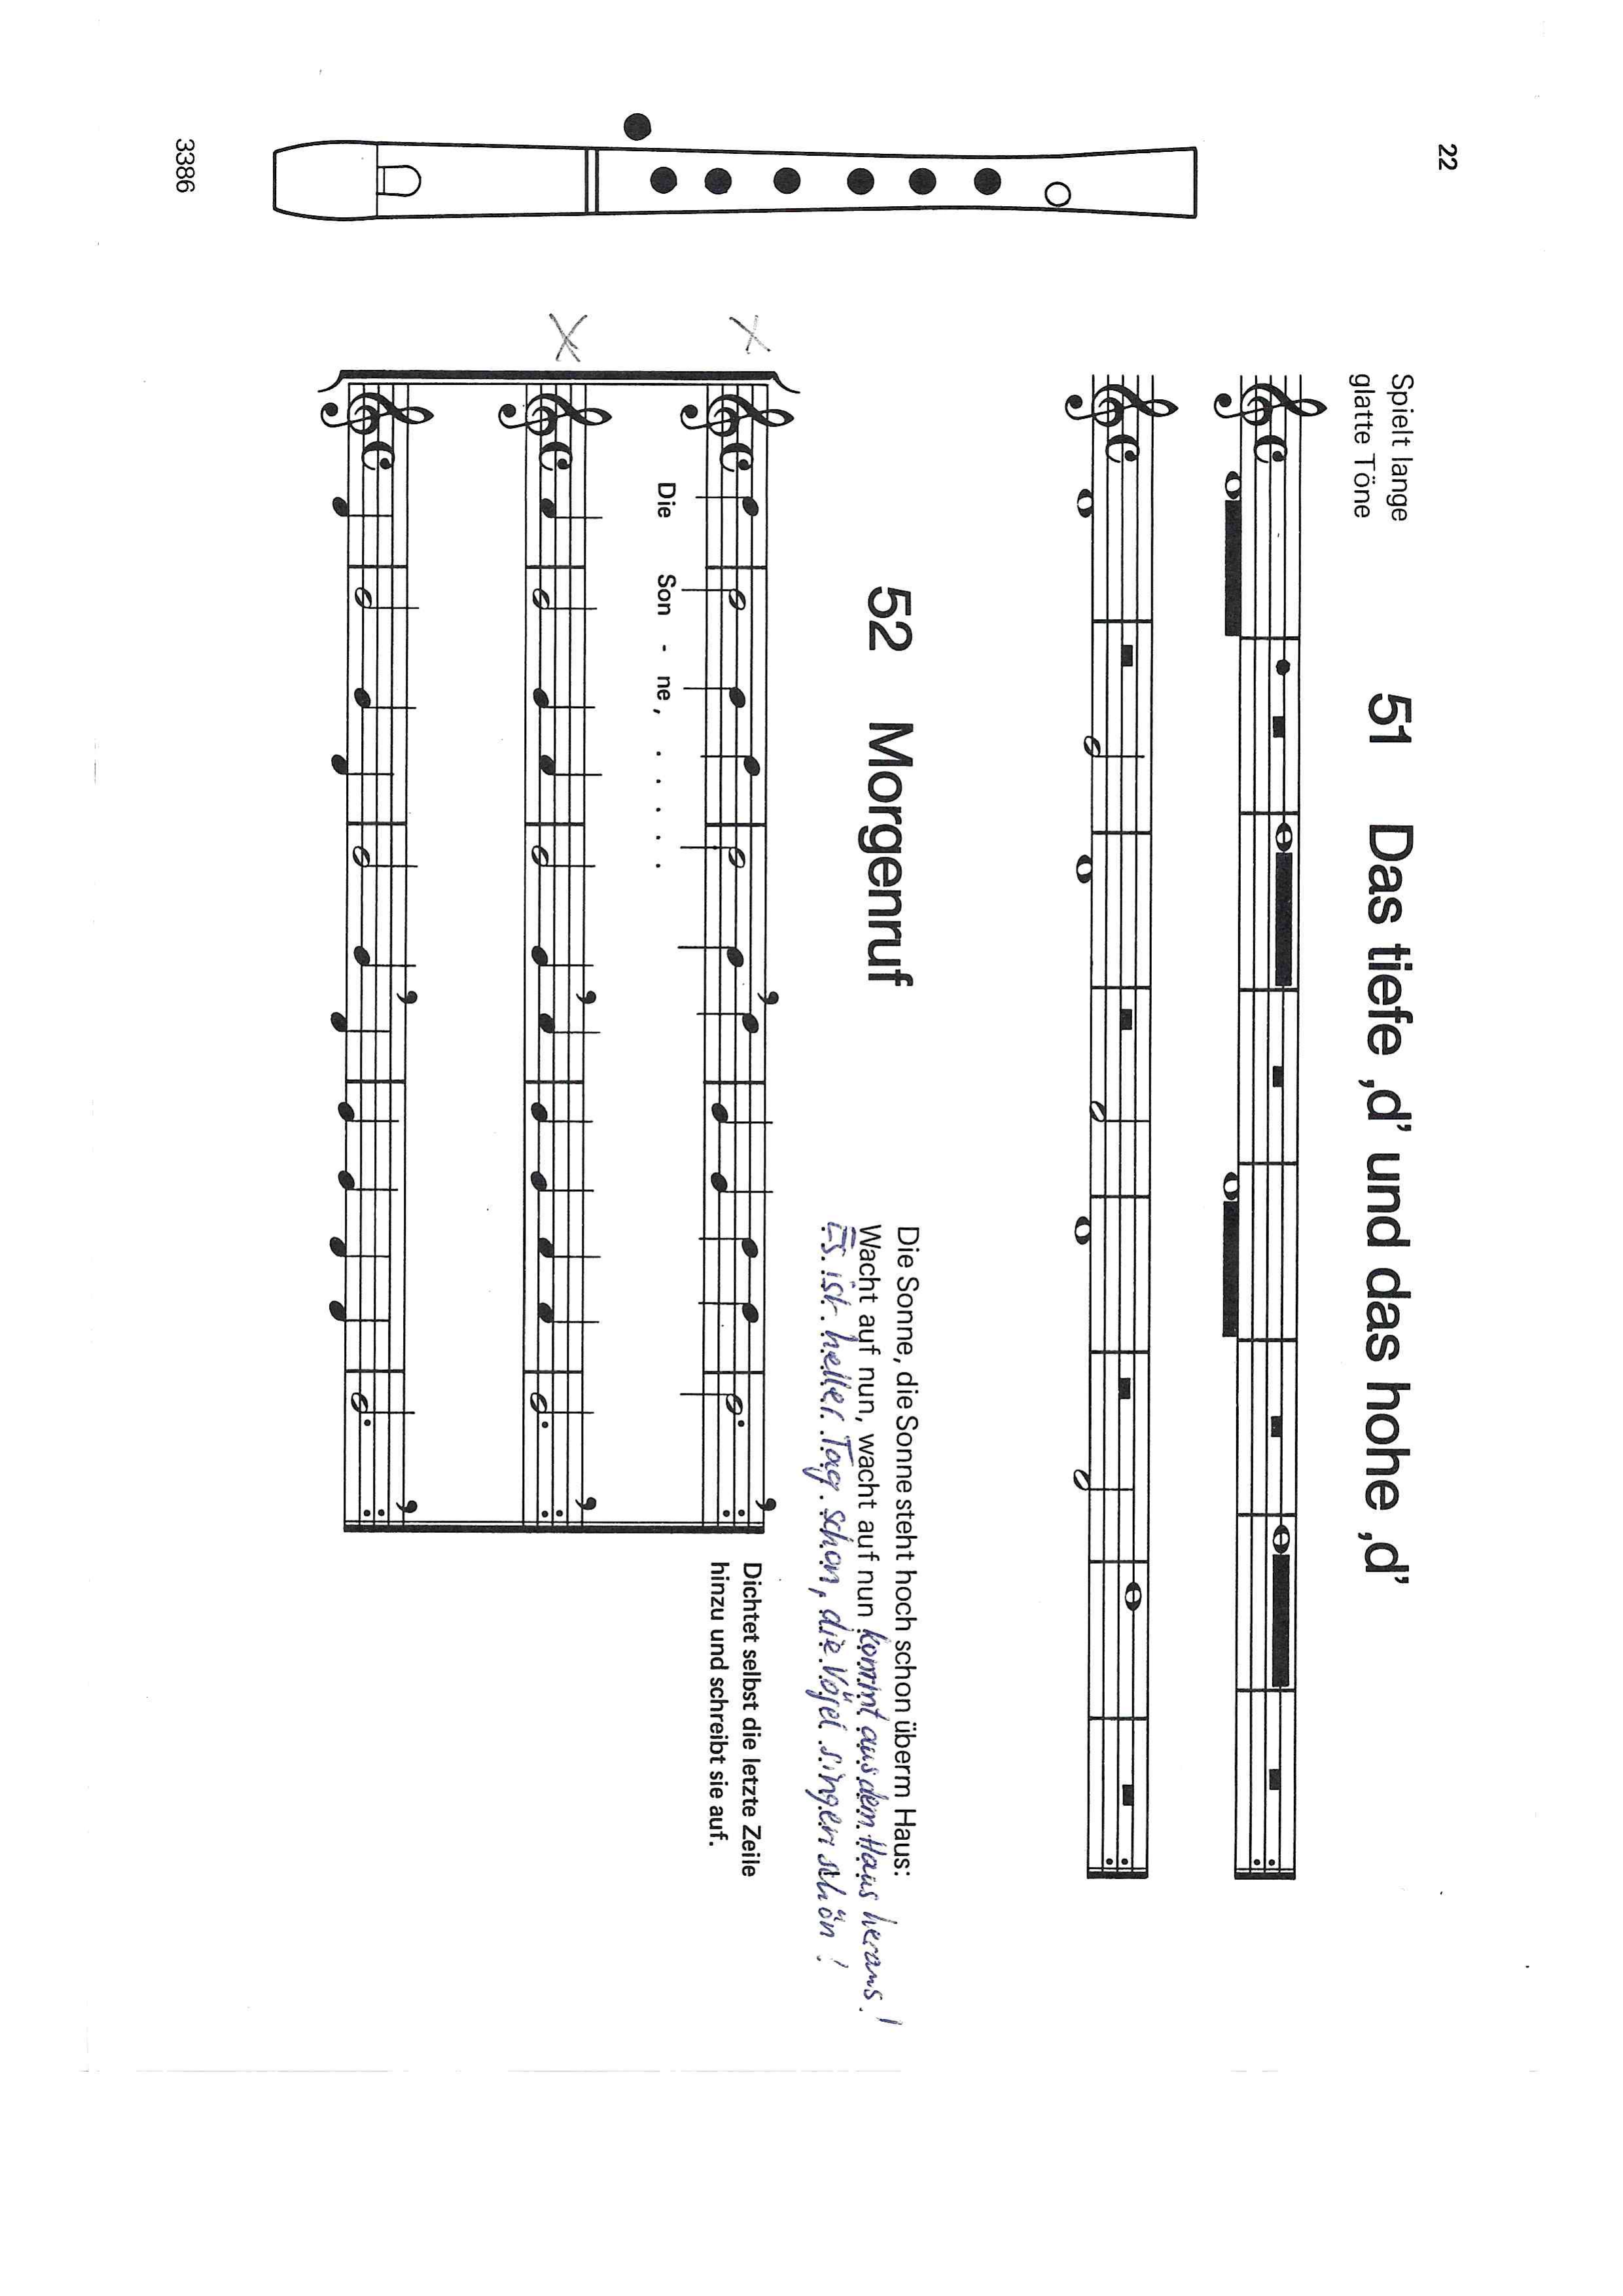 22
Spielt lange
glatte Töne
51 Das tiefe ‚d’ und das hohe ‚d’
52 Morgenruf
Die Sonne, die Sonne steht hoch schon überm Haus:
Wacht auf nun, wacht auf nun kommt aus dem Haus heraus!
Es ist heller Tag schon, die Vögel singen schön!
Die Son - ne, . . . . .
Dichtet selbst die letzte Zeile
hinzu und schreibt sie auf.
3386